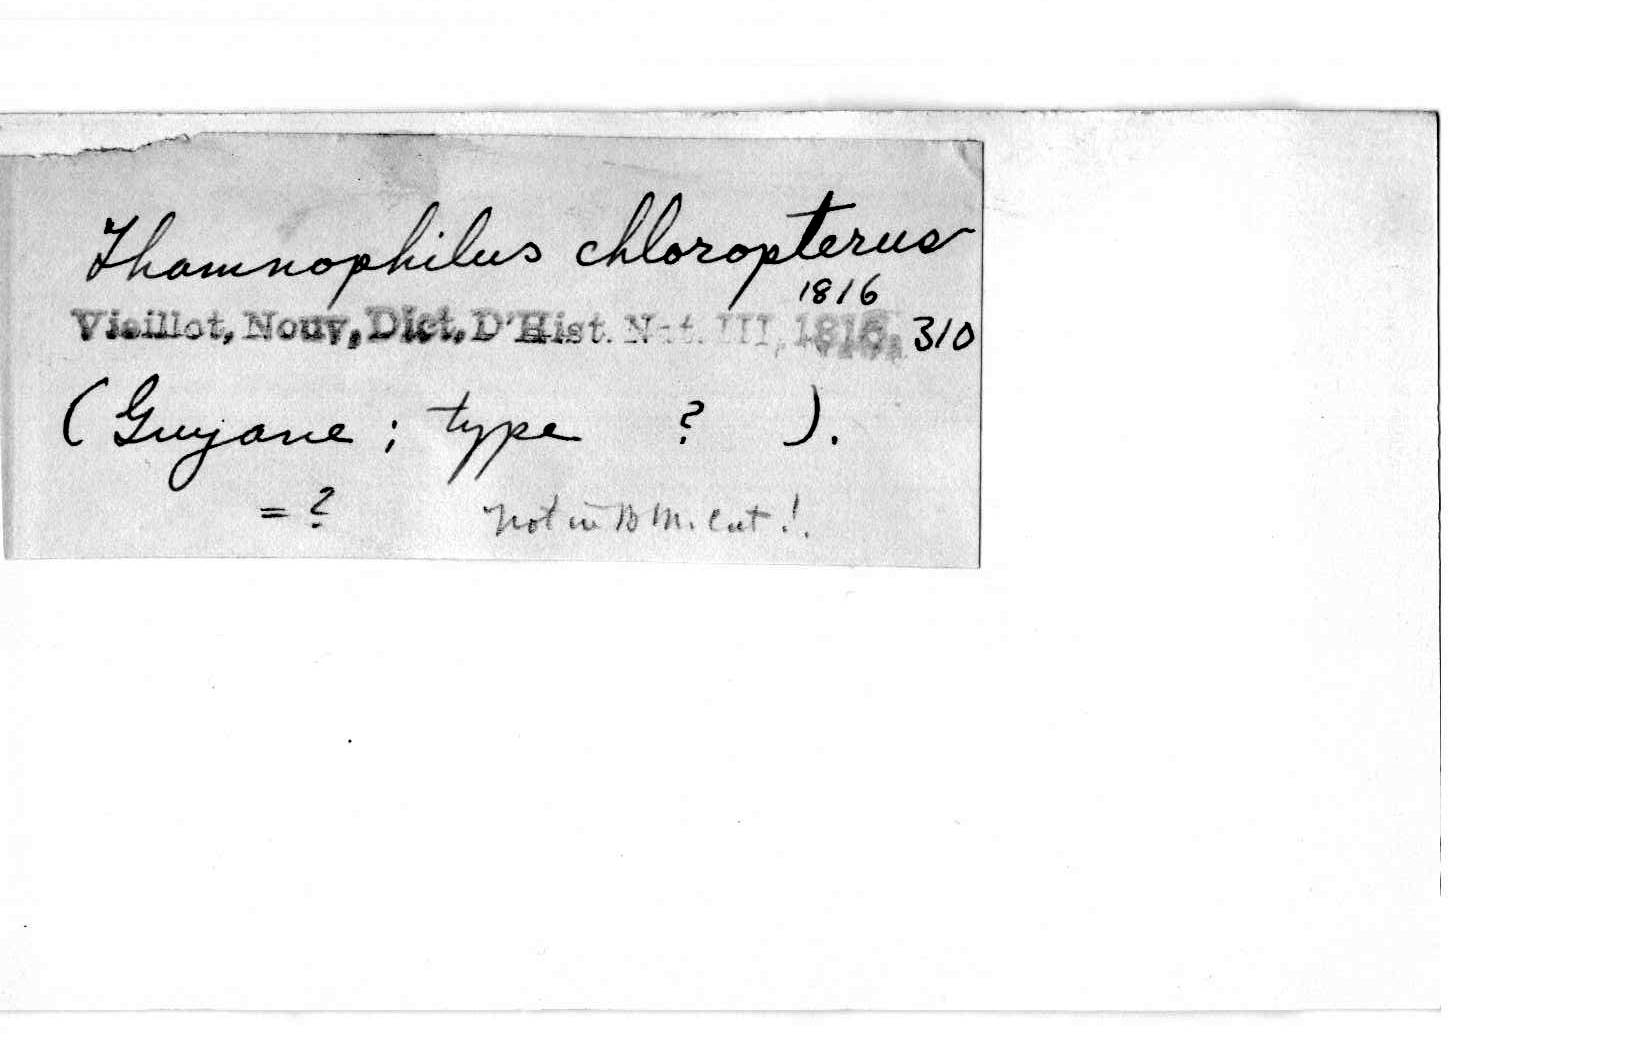 Thamnophilus chloropterus
1816
Vieillot, Nouv, Dict, D'Hist. Nat. III, 1816, 310
(Guyane ; type ? ).
= ? Not in B M. Cat !.